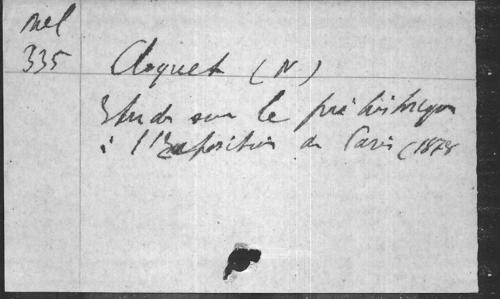 Mel
335
Cloquet (N)
Etude sur le préhistorique
à l'Exposition de Paris (1878